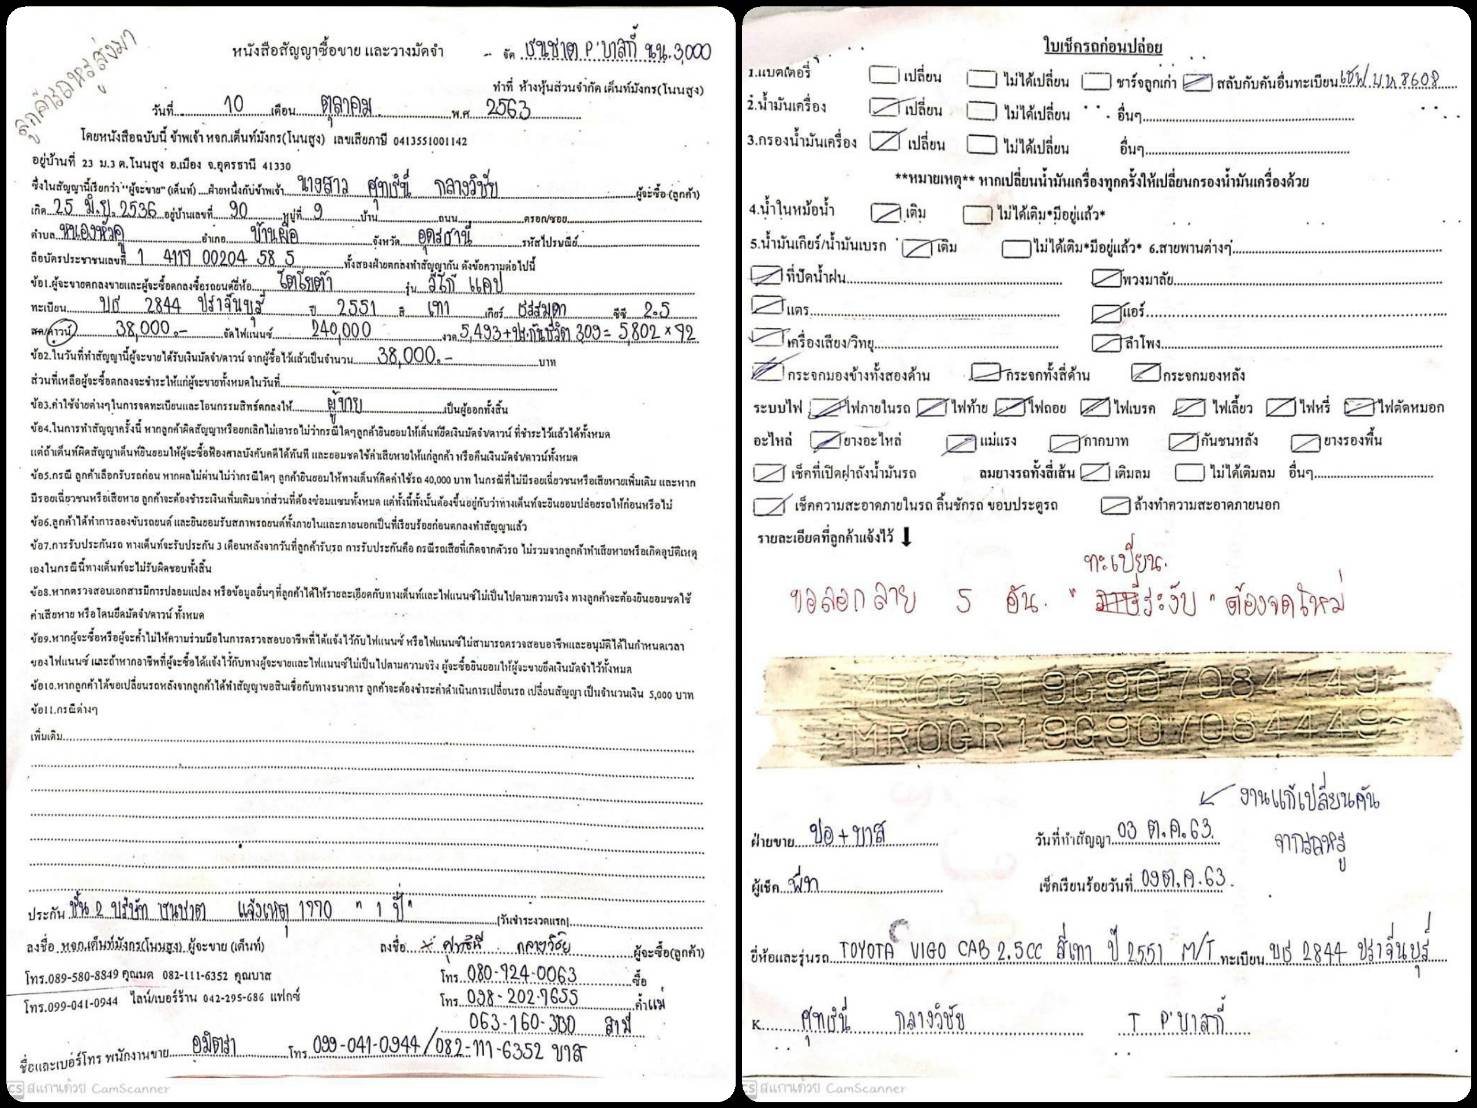 ลูกค้ารถหรูส่งมา
หนังสือสัญญาซื้อขาย และวางมัดจำ - จัด ธนชาต P'บาสกี้ นน.3,000
ทำที่ ห้างหุ้นส่วนจำกัด เต็นท์มังกร(โนนสูง)
วันที่ 10 เดือน ตุลาคม พ.ศ 2563
โดยหนังสือฉบับนี้ ข้าพเจ้า หจก.เต็นท์มังกร(โนนสูง) เลขเสียภาษี 0413551001142
อยู่บ้านที่ 23 ม.3 ต.โนนสูง อ.เมือง จ.อุดรธานี 41330
ซึ่งในสัญญานี้เรียกว่า "ผู้จะขาย" (เต็นท์) ฝ่ายหนึ่งกับข้าพเจ้า นางสาว ศุทธินี กลางวิชัย ผู้จะซื้อ (ลูกค้า)
เกิด 25 มิ.ย. 2536 อยู่บ้านเลขที่ 90 หมู่ที่ 9 บ้าน ถนน ตรอก/ซอย
ตำบล หนองหัวคู อำเภอ บ้านผือ จังหวัด อุดรธานี รหัสไปรษณีย์
ถือบัตรประชาชนเลขที่ 1 4117 00204 58 5 ทั้งสองฝ่ายตกลงทำสัญญากัน ดังข้อความต่อไปนี้
ข้อ1.ผู้จะขายตกลงขายและผู้จะซื้อตกลงซื้อรถยนต์ยี่ห้อ โตโยต้า รุ่น วีโก้ แคป
ทะเบียน บธ 2844 ปราจีนบุรี ปี 2551 สี เทา เกียร์ ธรรมดา ซีซี 2.5
สด/ดาวน์ 38,000.- จัดไฟแนนซ์ 240,000 งวด 5,493+ประกันชีวิต 309= 5,802 × 72
ข้อ2.ในวันที่ทำสัญญานี้ผู้จะขายได้รับเงินมัดจำ/ดาวน์ จากผู้ซื้อไว้แล้วเป็นจำนวน 38,000.- บาท
ส่วนที่เหลือผู้จะซื้อตกลงจะชำระให้แก่ผู้จะขายทั้งหมดในวันที่
ข้อ3.ค่าใช้จ่ายต่างๆในการจดทะเบียนและโอนกรรมสิทธิ์ตกลงให้ ผู้ขาย เป็นผู้ออกทั้งสิ้น
ข้อ4.ในการทำสัญญาครั้งนี้ หากลูกค้าผิดสัญญาหรือยกเลิกไม่เอารถไม่ว่ากรณีใดๆลูกค้ายินยอมให้เต็นท์ยึดเงินมัดจำ/ดาวน์ ที่ชำระไว้แล้วได้ทั้งหมด
แต่ถ้าเต็นท์ผิดสัญญาเต็นท์ยินยอมให้ผู้จะซื้อฟ้องศาลบังคับคดีได้ทันที และยอมชดใช้ค่าเสียหายให้แก่ลูกค้า หรือคืนเงินมัดจำ/ดาวน์ทั้งหมด
ข้อ5.กรณี ลูกค้าเลือกรับรถก่อน หากผลไม่ผ่านไม่ว่ากรณีใดๆ ลูกค้ายินยอมให้ทางเต็นท์คิดค่าใช้รถ 40,000 บาท ในกรณีที่ไม่มีรอยเฉี่ยวชนหรือเสียหายเพิ่มเติม และหาก
มีรอยเฉี่ยวชนหรือเสียหาย ลูกค้าจะต้องชำระเงินเพิ่มเติมจากส่วนที่ต้องซ่อมแซมทั้งหมด แต่ทั้งนี้ทั้งนั้นต้องขึ้นอยู่กับว่าทางเต็นท์จะยินยอมปล่อยรถให้ก่อนหรือไม่
ข้อ6.ลูกค้าได้ทำการลองขับรถยนต์ และยินยอมรับสภาพรถยนต์ทั้งภายในและภายนอกเป็นที่เรียบร้อยก่อนตกลงทำสัญญาแล้ว
ข้อ7.การรับประกันรถ ทางเต็นท์จะรับประกัน 3 เดือนหลังจากวันที่ลูกค้ารับรถ การรับประกันคือ กรณีรถเสียที่เกิดจากตัวรถ ไม่รวมจากลูกค้าทำเสียหายหรือเกิดอุบัติเหตุ
เองในกรณีนี้ทางเต็นท์จะไม่รับผิดชอบทั้งสิ้น
ข้อ8.หากตรวจสอบเอกสารมีการปลอมแปลง หรือข้อมูลอื่นๆที่ลูกค้าได้ให้รายละเอียดกับทางเต็นท์และไฟแนนซ์ไม่เป็นไปตามความจริง ทางลูกค้าจะต้องยินยอมชดใช้
ค่าเสียหาย หรือโดนยึดมัดจำ/ดาวน์ ทั้งหมด
ข้อ9.หากผู้จะซื้อหรือผู้จะค้ำไม่ให้ความร่วมมือในการตรวจสอบอาชีพที่ได้แจ้งไว้กับไฟแนนซ์ หรือไฟแนนซ์ไม่สามารถตรวจสอบอาชีพและอนุมัติได้ในกำหนดเวลา
ของไฟแนนซ์ และถ้าหากอาชีพที่ผู้จะซื้อได้แจ้งไว้กับทางผู้จะขายและไฟแนนซ์ไม่เป็นไปตามความจริง ผู้จะซื้อยินยอมให้ผู้จะขายยึดเงินมัดจำไว้ทั้งหมด
ข้อ10.หากลูกค้าได้ขอเปลี่ยนรถหลังจากลูกค้าได้ทำสัญญาขอสินเชื่อกับทางธนาคาร ลูกค้าจะต้องชำระค่าดำเนินการเปลี่ยนรถ เปลี่ยนสัญญา เป็นจำนวนเงิน 5,000 บาท
ข้อ11.กรณีต่างๆ
เพิ่มเติม
ประกัน ชั้น 2 บริษัท ธนชาต แจ้งเหตุ 1770 " 1 ปี " (วันชำระงวดแรก)
ลงชื่อ หจก.เต็นท์มังกร(โนนสูง) ผู้จะขาย (เต็นท์) ลงชื่อ × ศุทธินี กลางวิชัย ผู้จะซื้อ(ลูกค้า)
โทร.089-580-8849 คุณมด 082-111-6352 คุณบาส โทร. 080-924-0063 ซื้อ
โทร.099-041-0944 ไลน์/เบอร์ร้าน 042-295-686 แฟกซ์ โทร. 098-202-7655 ค้ำแม่
063-160-3130 สามี
ชื่อและเบอร์โทร พนักงานขาย อมิตรา โทร 099-041-0944/082-111-6352 บาส
CS สแกนด้วย CamScanner
ใบเช็ครถก่อนปล่อย
1.แบตเตอรี่ เปลี่ยน ไม่ได้เปลี่ยน ชาร์จลูกเก่า สลับกับคันอื่นทะเบียน เชฟ บห 8608
2.น้ำมันเครื่อง เปลี่ยน ไม่ได้เปลี่ยน อื่นๆ
3.กรองน้ำมันเครื่อง เปลี่ยน ไม่ได้เปลี่ยน อื่นๆ
**หมายเหตุ** หากเปลี่ยนน้ำมันเครื่องทุกครั้งให้เปลี่ยนกรองน้ำมันเครื่องด้วย
4.น้ำในหม้อน้ำ เติม ไม่ได้เติม*มีอยู่แล้ว*
5.น้ำมันเกียร์/น้ำมันเบรก เติม ไม่ได้เติม*มีอยู่แล้ว* 6.สายพานต่างๆ
ที่ปัดน้ำฝน พวงมาลัย
แตร แอร์
เครื่องเสียง/วิทยุ ลำโพง
กระจกมองข้างทั้งสองด้าน กระจกทั้งสี่ด้าน กระจกมองหลัง
ระบบไฟ ไฟภายในรถ ไฟท้าย ไฟถอย ไฟเบรค ไฟเลี้ยว ไฟหรี่ ไฟตัดหมอก
อะไหล่ ยางอะไหล่ แม่แรง กากบาท กันชนหลัง ยางรองพื้น
เช็คที่เปิดฝาถังน้ำมันรถ ลมยางรถทั้งสี่เส้น เติมลม ไม่ได้เติมลม อื่นๆ
เช็คความสะอาดภายในรถ ลิ้นชักรถ ขอบประตูรถ ล้างทำความสะอาดภายนอก
รายละเอียดที่ลูกค้าแจ้งไว้ ⬇
ทะเบียน
ขอลอกลาย 5 อัน. " ระงับ " ต้องจดใหม่
MROGR19G907084449
MROGR19G907084449
งานแก้เปลี่ยนคัน
จากรถหรู
ฝ่ายขาย ปอ + บาส วันที่ทำสัญญา 03 ต.ค.63.
ผู้เช็ค พี่ท เช็คเรียบร้อยวันที่ 09 ต.ค.63.
ยี่ห้อและรุ่นรถ TOYOTA VIGO CAB 2.5CC สีเทา ปี 2551 M/T ทะเบียน บธ 2844 ปราจีนบุรี
K. ศุทธินี กลางวิชัย T P'บาสกี้
CS สแกนด้วย CamScanner